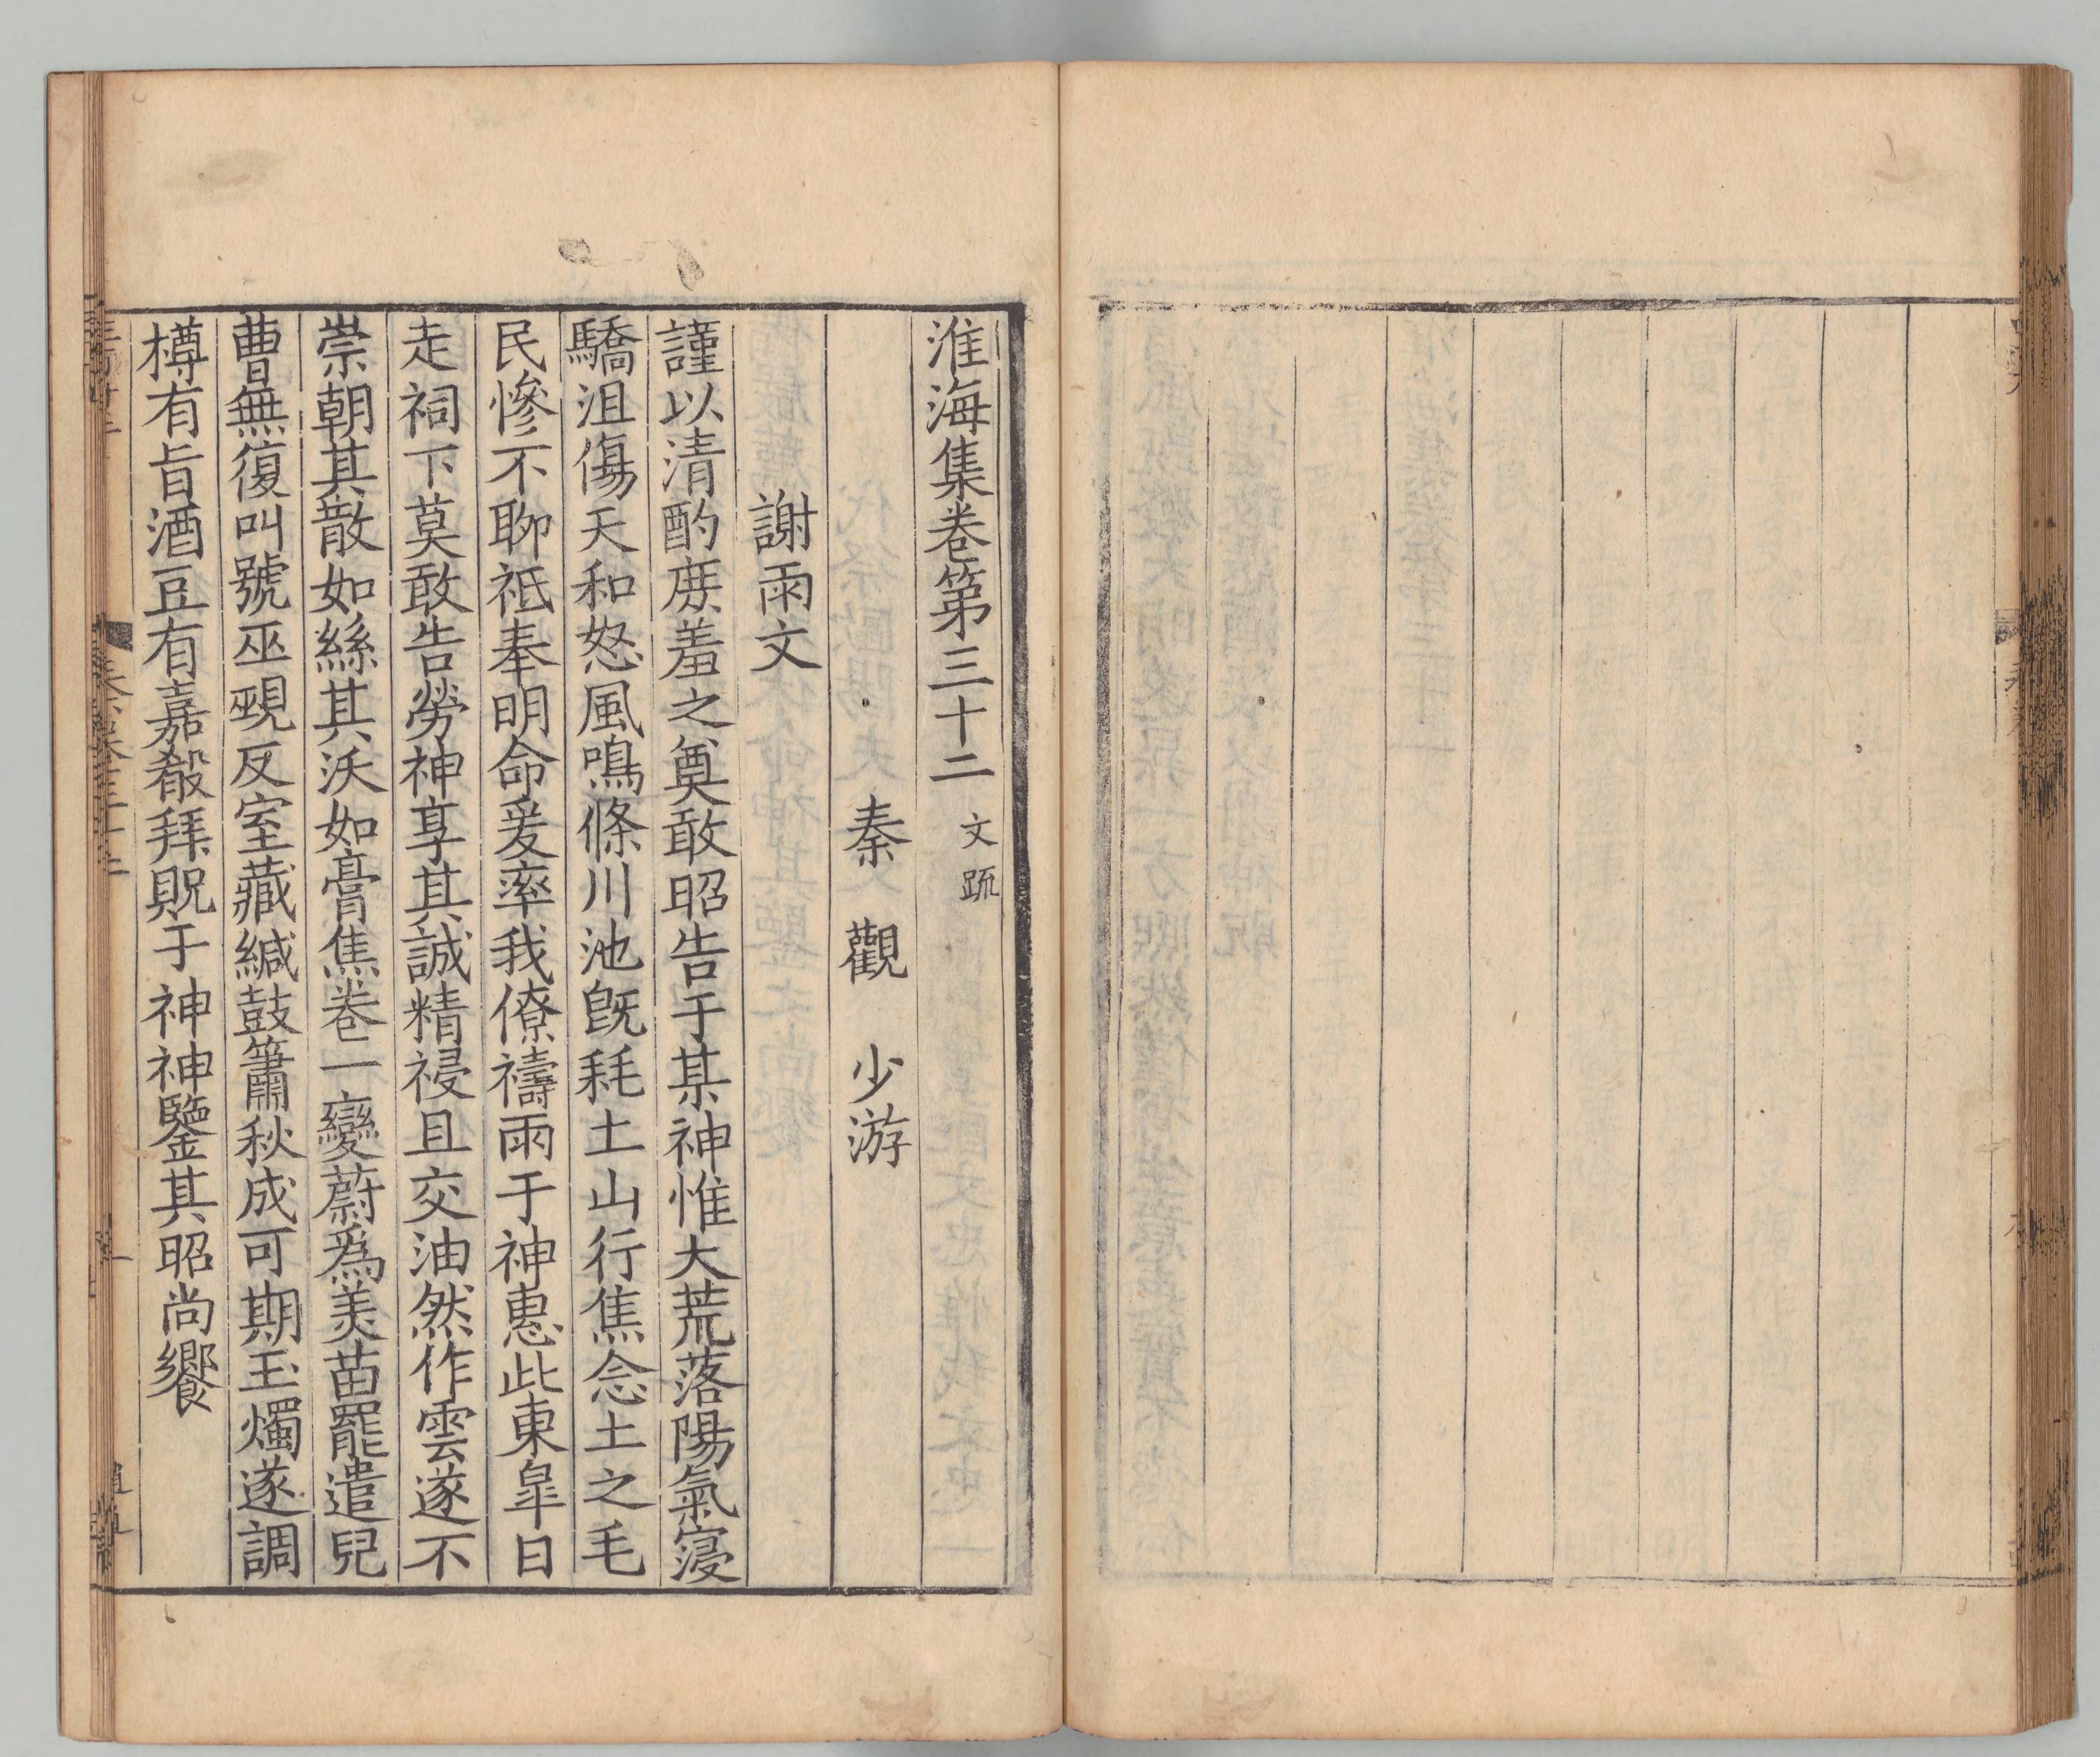 淮海集卷第三十二 文疏
秦觀 少游
謝雨文
謹以清酌庶羞之奠敢昭告于某神惟大荒落陽氣寖
驕沮傷天和怒風鳴條川池旣耗土山行焦念土之毛
民慘不聊祗奉明命爰率我僚禱雨于神惠此東皐日
走祠下莫敢告勞神享其誠精祲且交油然作雲遂不
崇朝其散如絲其沃如膏焦卷一變蔚爲美苗罷遣兒
曹無復叫號巫覡反室藏緘鼓簫秋成可期玉燭遂調
樽有旨酒豆有嘉殽拜貺于神神鑒其昭尚饗